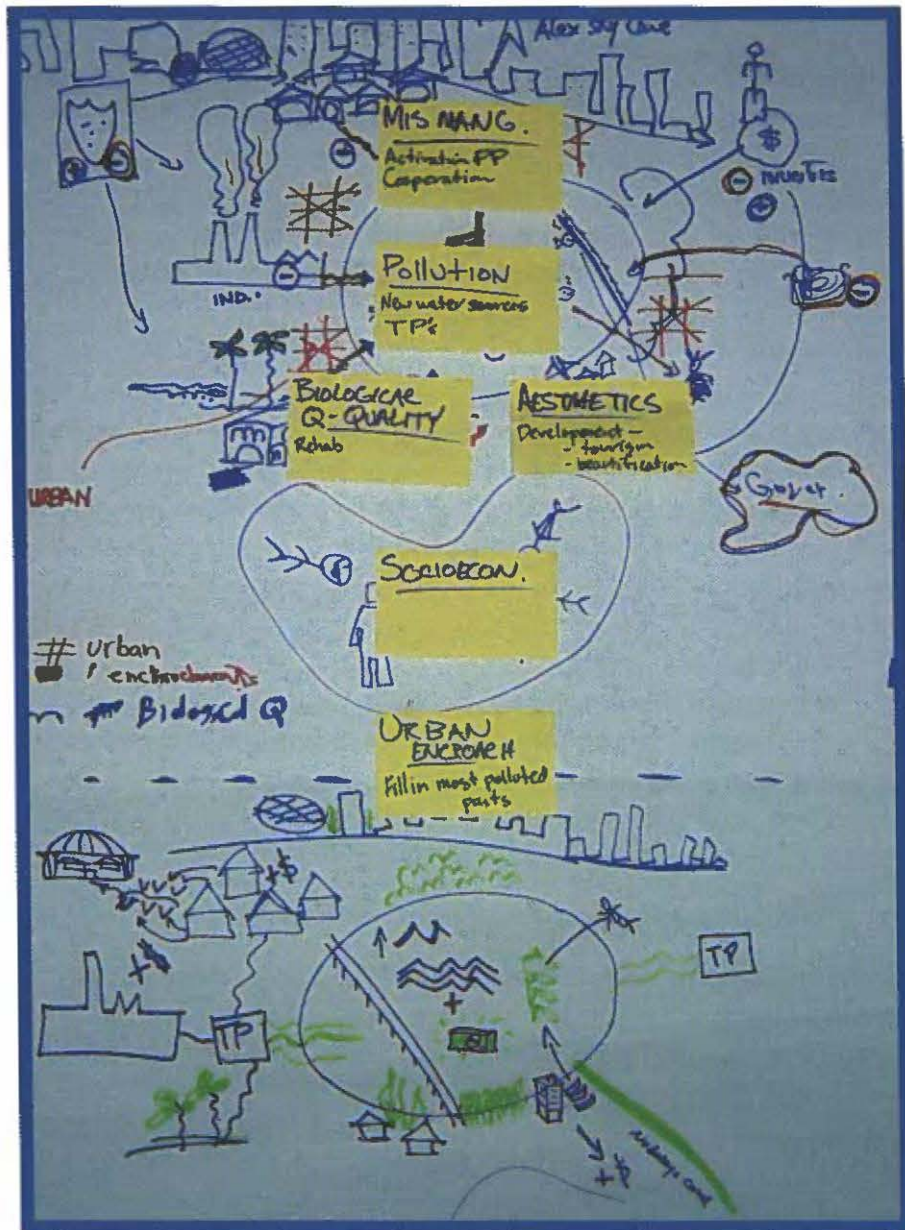 Alex sky line
MISMANG.
Activation PP
Cooperation
$
POLLUTION
New water sources
TP's
IND.
BIOLOGICAL
Q-QUALITY
Rehab
AESTHETICS
Development -
- tourism
- beautification
URBAN
Gover.
SOCIOECON.
urban
encroachments
Biological Q
URBAN
ENCROACH
Fill in most polluted
parts
+$
+$
TP
TP
+
+$